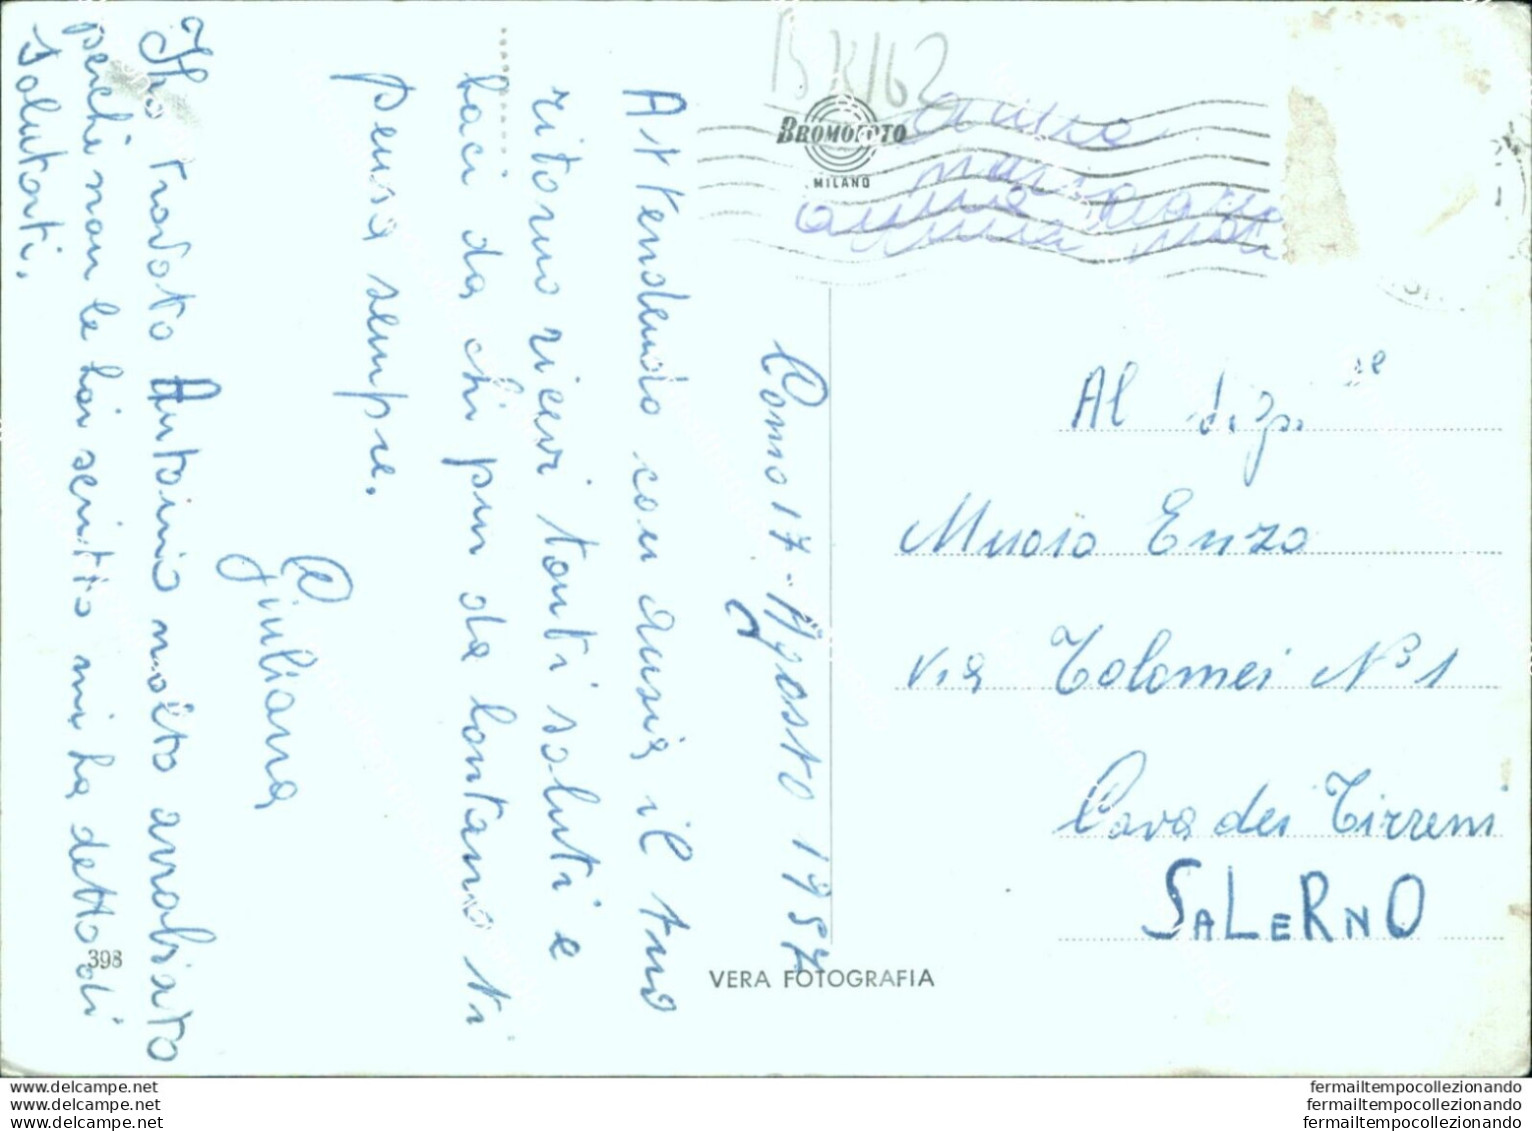 BK162
BROMOFOTO
MILANO
anna
anna
Como 17 - Agosto 1957
Attendendo con ansia il tuo
ritorno ricevi tanti saluti e
baci da chi pur da lontano ti
pensa sempre.
Giuliana
Ho trovato Antonio molto arrabiato
perchè non le hai scritto mi ha detto di
Salutarti.
Al
Enzo
Via Tolomei N° 1
Cava dei Tirreni
SALERNO
398
VERA FOTOGRAFIA
www.delcampe.net
www.delcampe.net
www.delcampe.net
fermailtempocollezionando
fermailtempocollezionando
fermailtempocollezionando